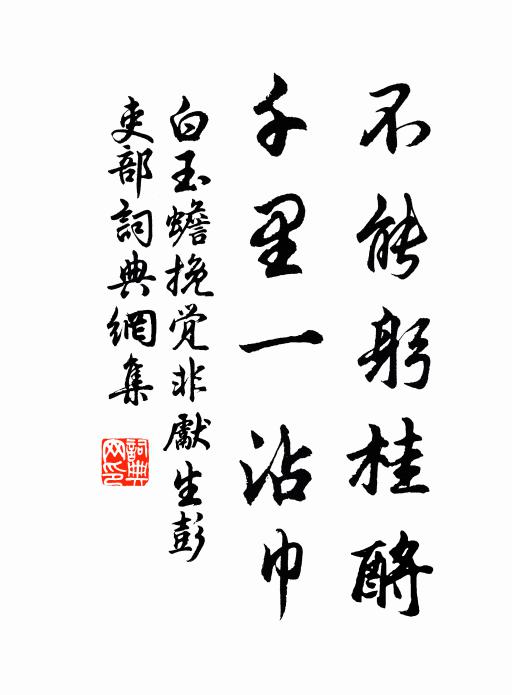 不能躬桂酹
千里一沾巾
白玉蟾挽觉非獻生彭
吏部詞典網集
詞典網印